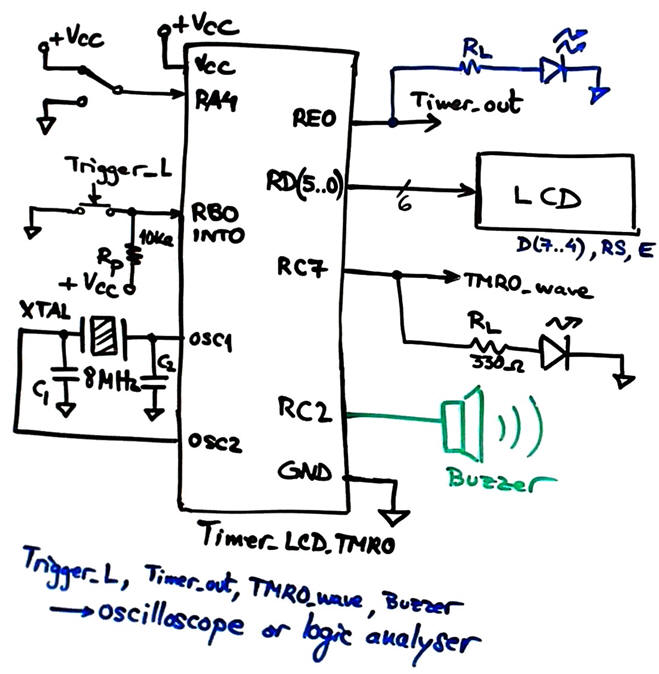 +Vcc
+Vcc
Vcc
RA4
RL
RE0
Timer_out
Trigger_L
RD(5..0)
6
LCD
D(7..4), RS, E
RB0
INT0
10kΩ
Rp
+Vcc
RC7
TMR0_wave
XTAL
OSC1
RL
330Ω
C1
8MHz
C2
RC2
OSC2
GND
Buzzer
Timer_LCD_TMR0
Trigger_L, Timer_out, TMR0_wave, Buzzer
→ oscilloscope or logic analyser